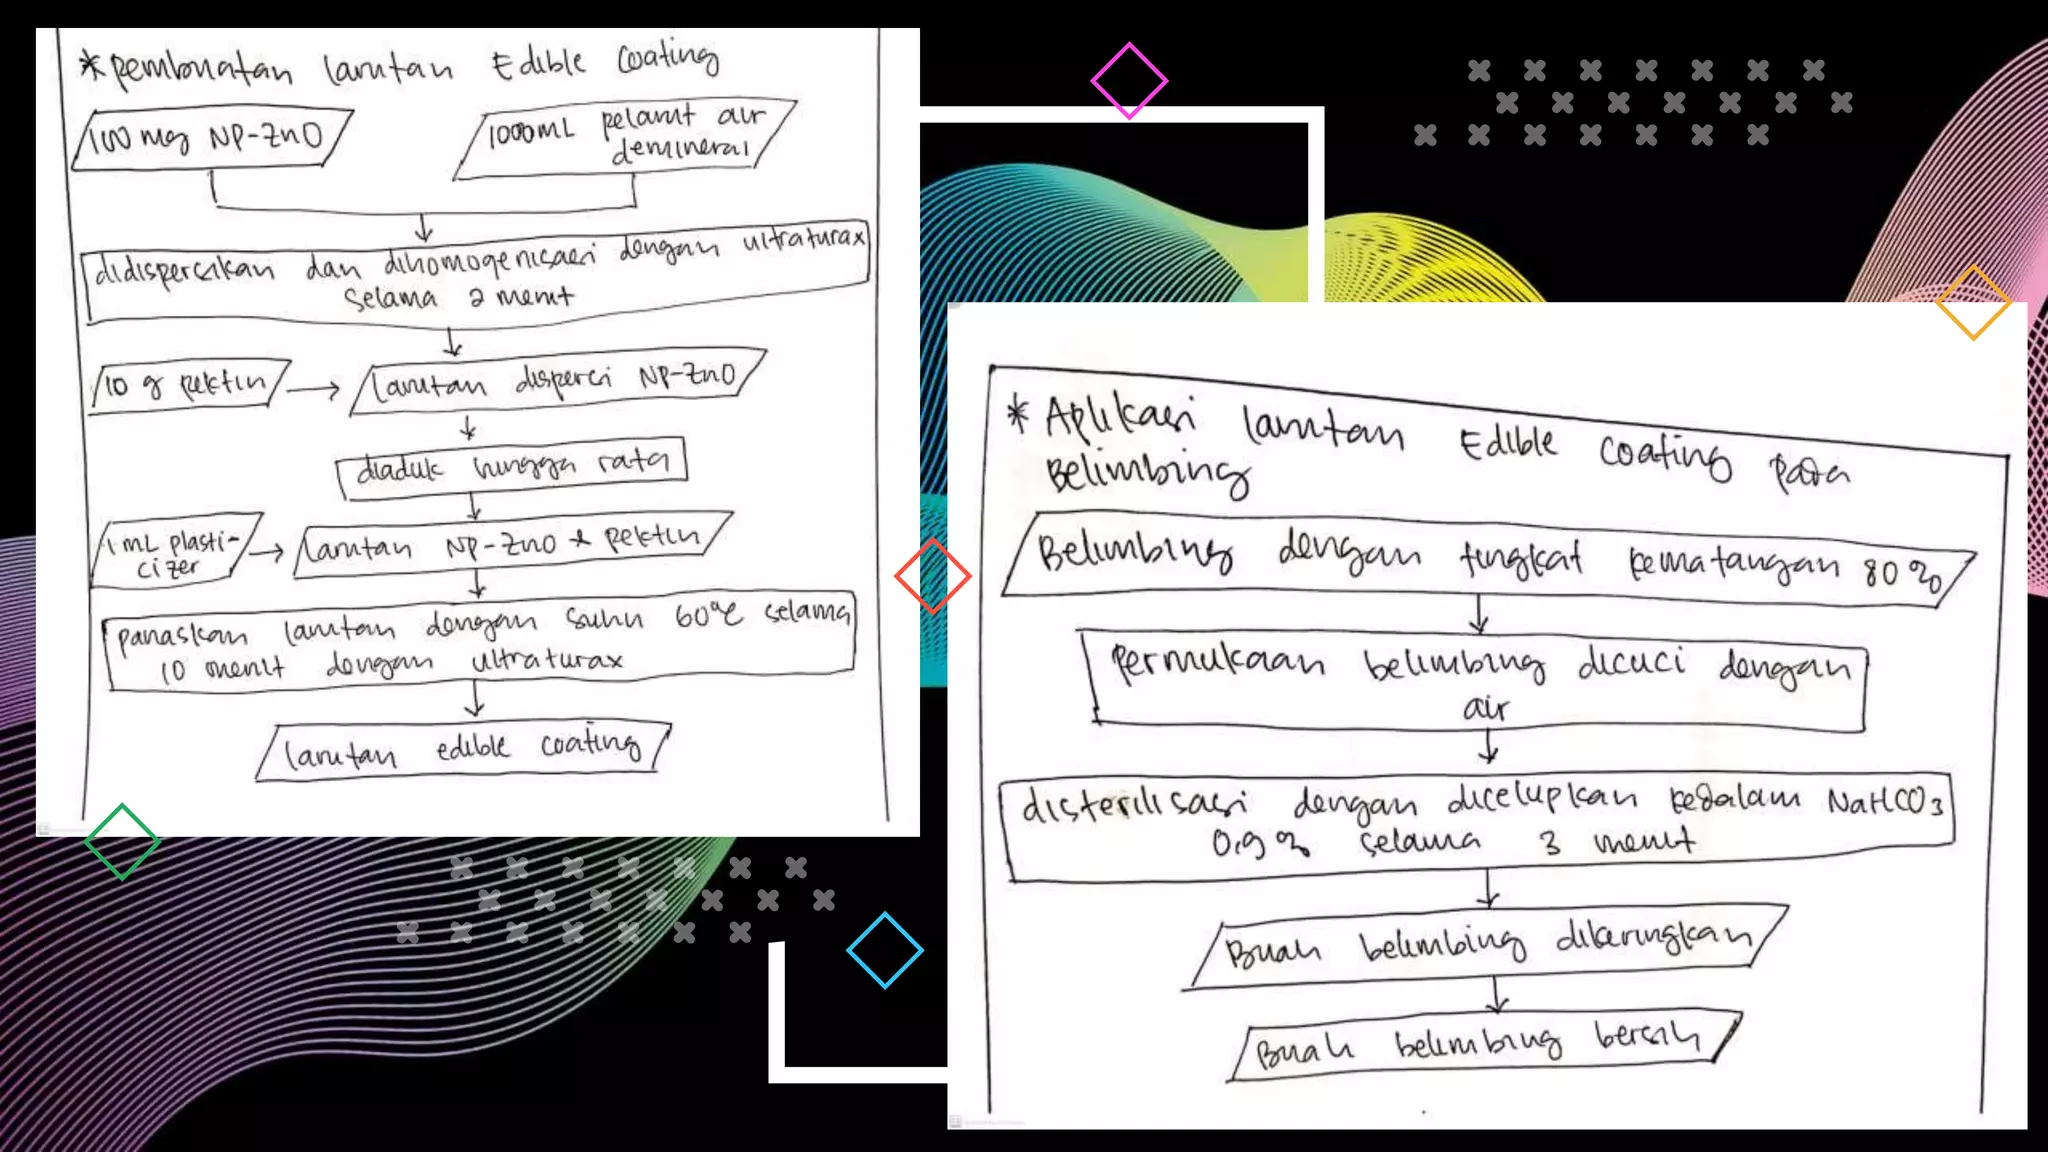 *Pembuatan larutan Edible Coating
100 mg NP-ZnO
1000mL pelarut air
demineral
didispersikan dan dihomogenisasi dengan ultraturax
selama 2 menit
10 g pektin
larutan dispersi NP-ZnO
diaduk hingga rata
1 mL plasti-
cizer
larutan NP-ZnO & pektin
panaskan larutan dengan suhu 60°C selama
10 menit dengan ultraturax
larutan edible coating
* Aplikasi larutan Edible Coating pada
Belimbing
Belimbing dengan tingkat kematangan 80%
Permukaan belimbing dicuci dengan
air
disterilisasi dengan dicelupkan kedalam NaHCO3
0,9% selama 3 menit
Buah belimbing dikeringkan
Buah belimbing bersih